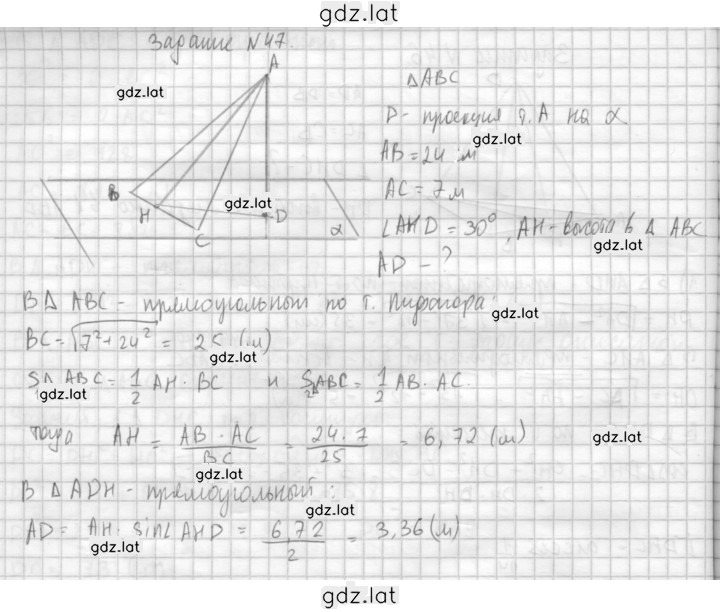 gdz.lat
Задание №47.
A
B
H
C
D
α
gdz.lat
gdz.lat
△ABC
D - проекция т. A на α
gdz.lat
AB = 24 м
AC = 7 м
∠AHD = 30°, AH - высота в △ ABC
gdz.lat
AD - ?
В △ ABC - прямоугольном по т. Пифагора:
gdz.lat
BC = √7² + 24² = 25 (м)
gdz.lat
S△ ABC = 1/2 AH · BC и S△ABC = 1/2 AB · AC.
gdz.lat
gdz.lat
тогда AH = AB · AC / BC = 24 · 7 / 25 = 6,72 (м)
gdz.lat
gdz.lat
В △ ADH - прямоугольный:
gdz.lat
AD = AH · sin∠ AHD = 6,72 / 2 = 3,36 (м)
gdz.lat
gdz.lat
gdz.lat